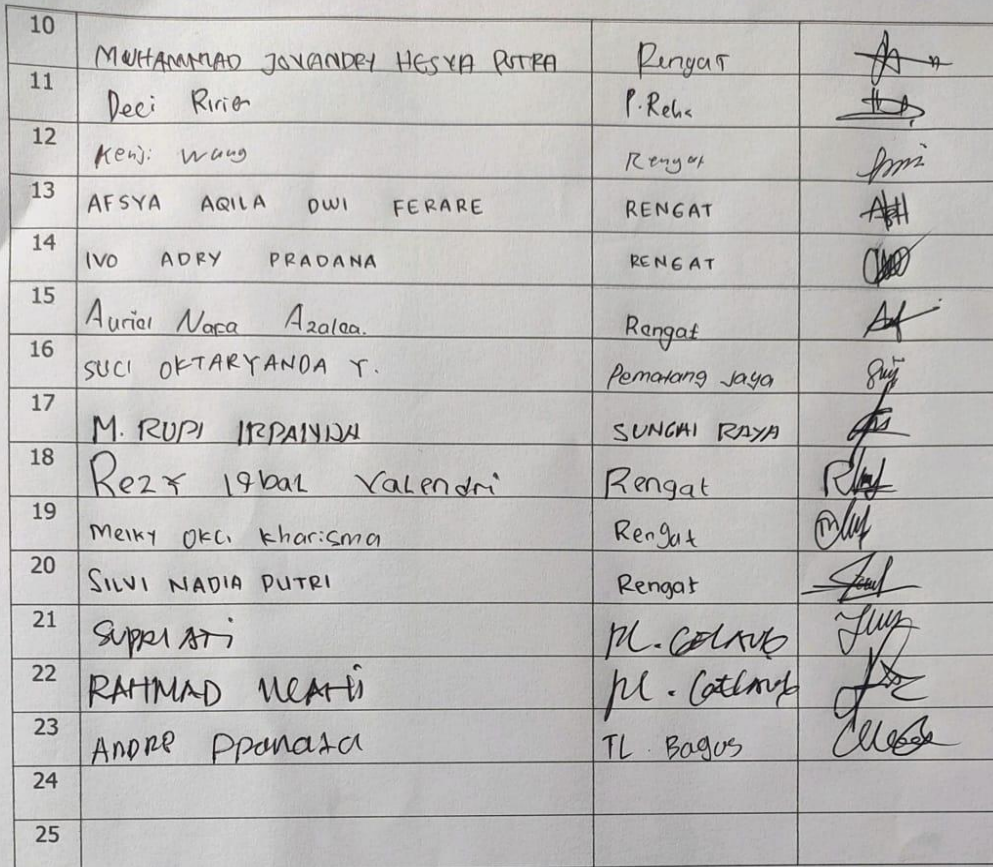 10 MUHAMMAD JOVANDRY HESYA PUTRA Rengat
11 Deci Ririen P.Reba
12 Kenji Wang Rengat
13 AFSYA AQILA DWI FERARE RENGAT
14 IVO ADRY PRADANA RENGAT
15 Auriel Nafa Azalea. Rengat
16 SUCI OKTARYANDA Y. Pematang Jaya
17 M. RUPI SUNGAI RAYA
18 Rezy Iqbal Valendri Rengat
19 Meiky Oki Kharisma Rengat
20 SILVI NADIA PUTRI Rengat
21 SUPRIATI
22 RAHMAD
23 ANDRE TL. Bagus
24
25